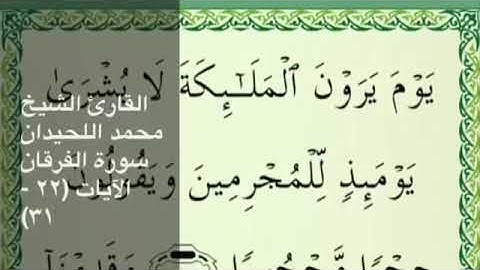 يَوْمَ يَرَوْنَ ٱلْمَلَـٰٓئِكَةَ لَا بُشْرَىٰ
يَوْمَئِذٍ لِّلْمُجْرِمِينَ وَيَقُولُونَ
حِجْرًا مَّحْجُورًا وَقَدِمْنَآ
القارئ الشيخ
محمد اللحيدان
سورة الفرقان
الآيات (٢٢ -
٣١)